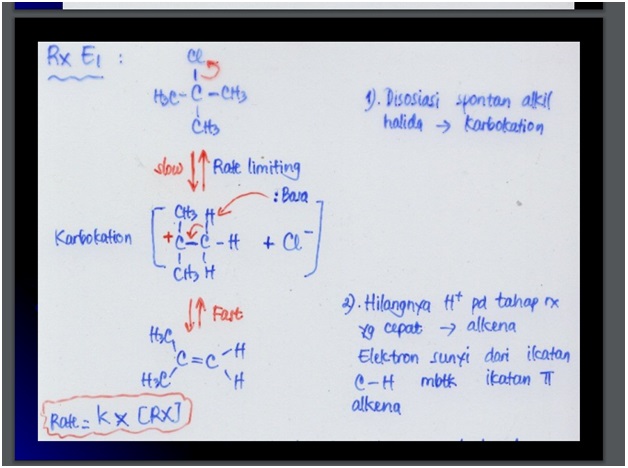 Rx E1 :
Cl
H3C-C-CH3
CH3
1). Disosiasi spontan alkil
halida → Karbokation
slow Rate limiting
: Basa
Karbokation
CH3 H
+C-C-H + Cl-
CH3 H
Fast
2). Hilangnya H+ pd tahap rx
yg cepat → alkena
Elektron sunyi dari ikatan
C-H mbtk ikatan π
alkena
H3C
C=C-H
H3C H
Rate = k x [RX]